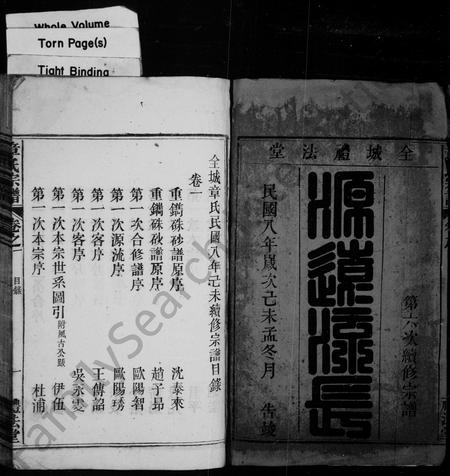 Whole Volume
Torn Page(s)
Tight Binding
全城禮法堂
第六次續修宗譜
源遠流長
民國八年歲次己未孟冬月 告竣
全城章氏民國八年己未續修宗譜目錄
卷一
重鐫硃砂譜原序 沈泰來
重鐫硃砂譜原序 趙子昂
第一次合修譜序 歐陽智
第一次源流序 歐陽琇
第一次客序 王傳詔
第一次客序 吳永雯
第一次本宗世系圖引 附風古公題 伊伍
第一次本宗序 杜浦
章氏宗譜 卷之一 目錄 一 禮法堂
FamilySearch